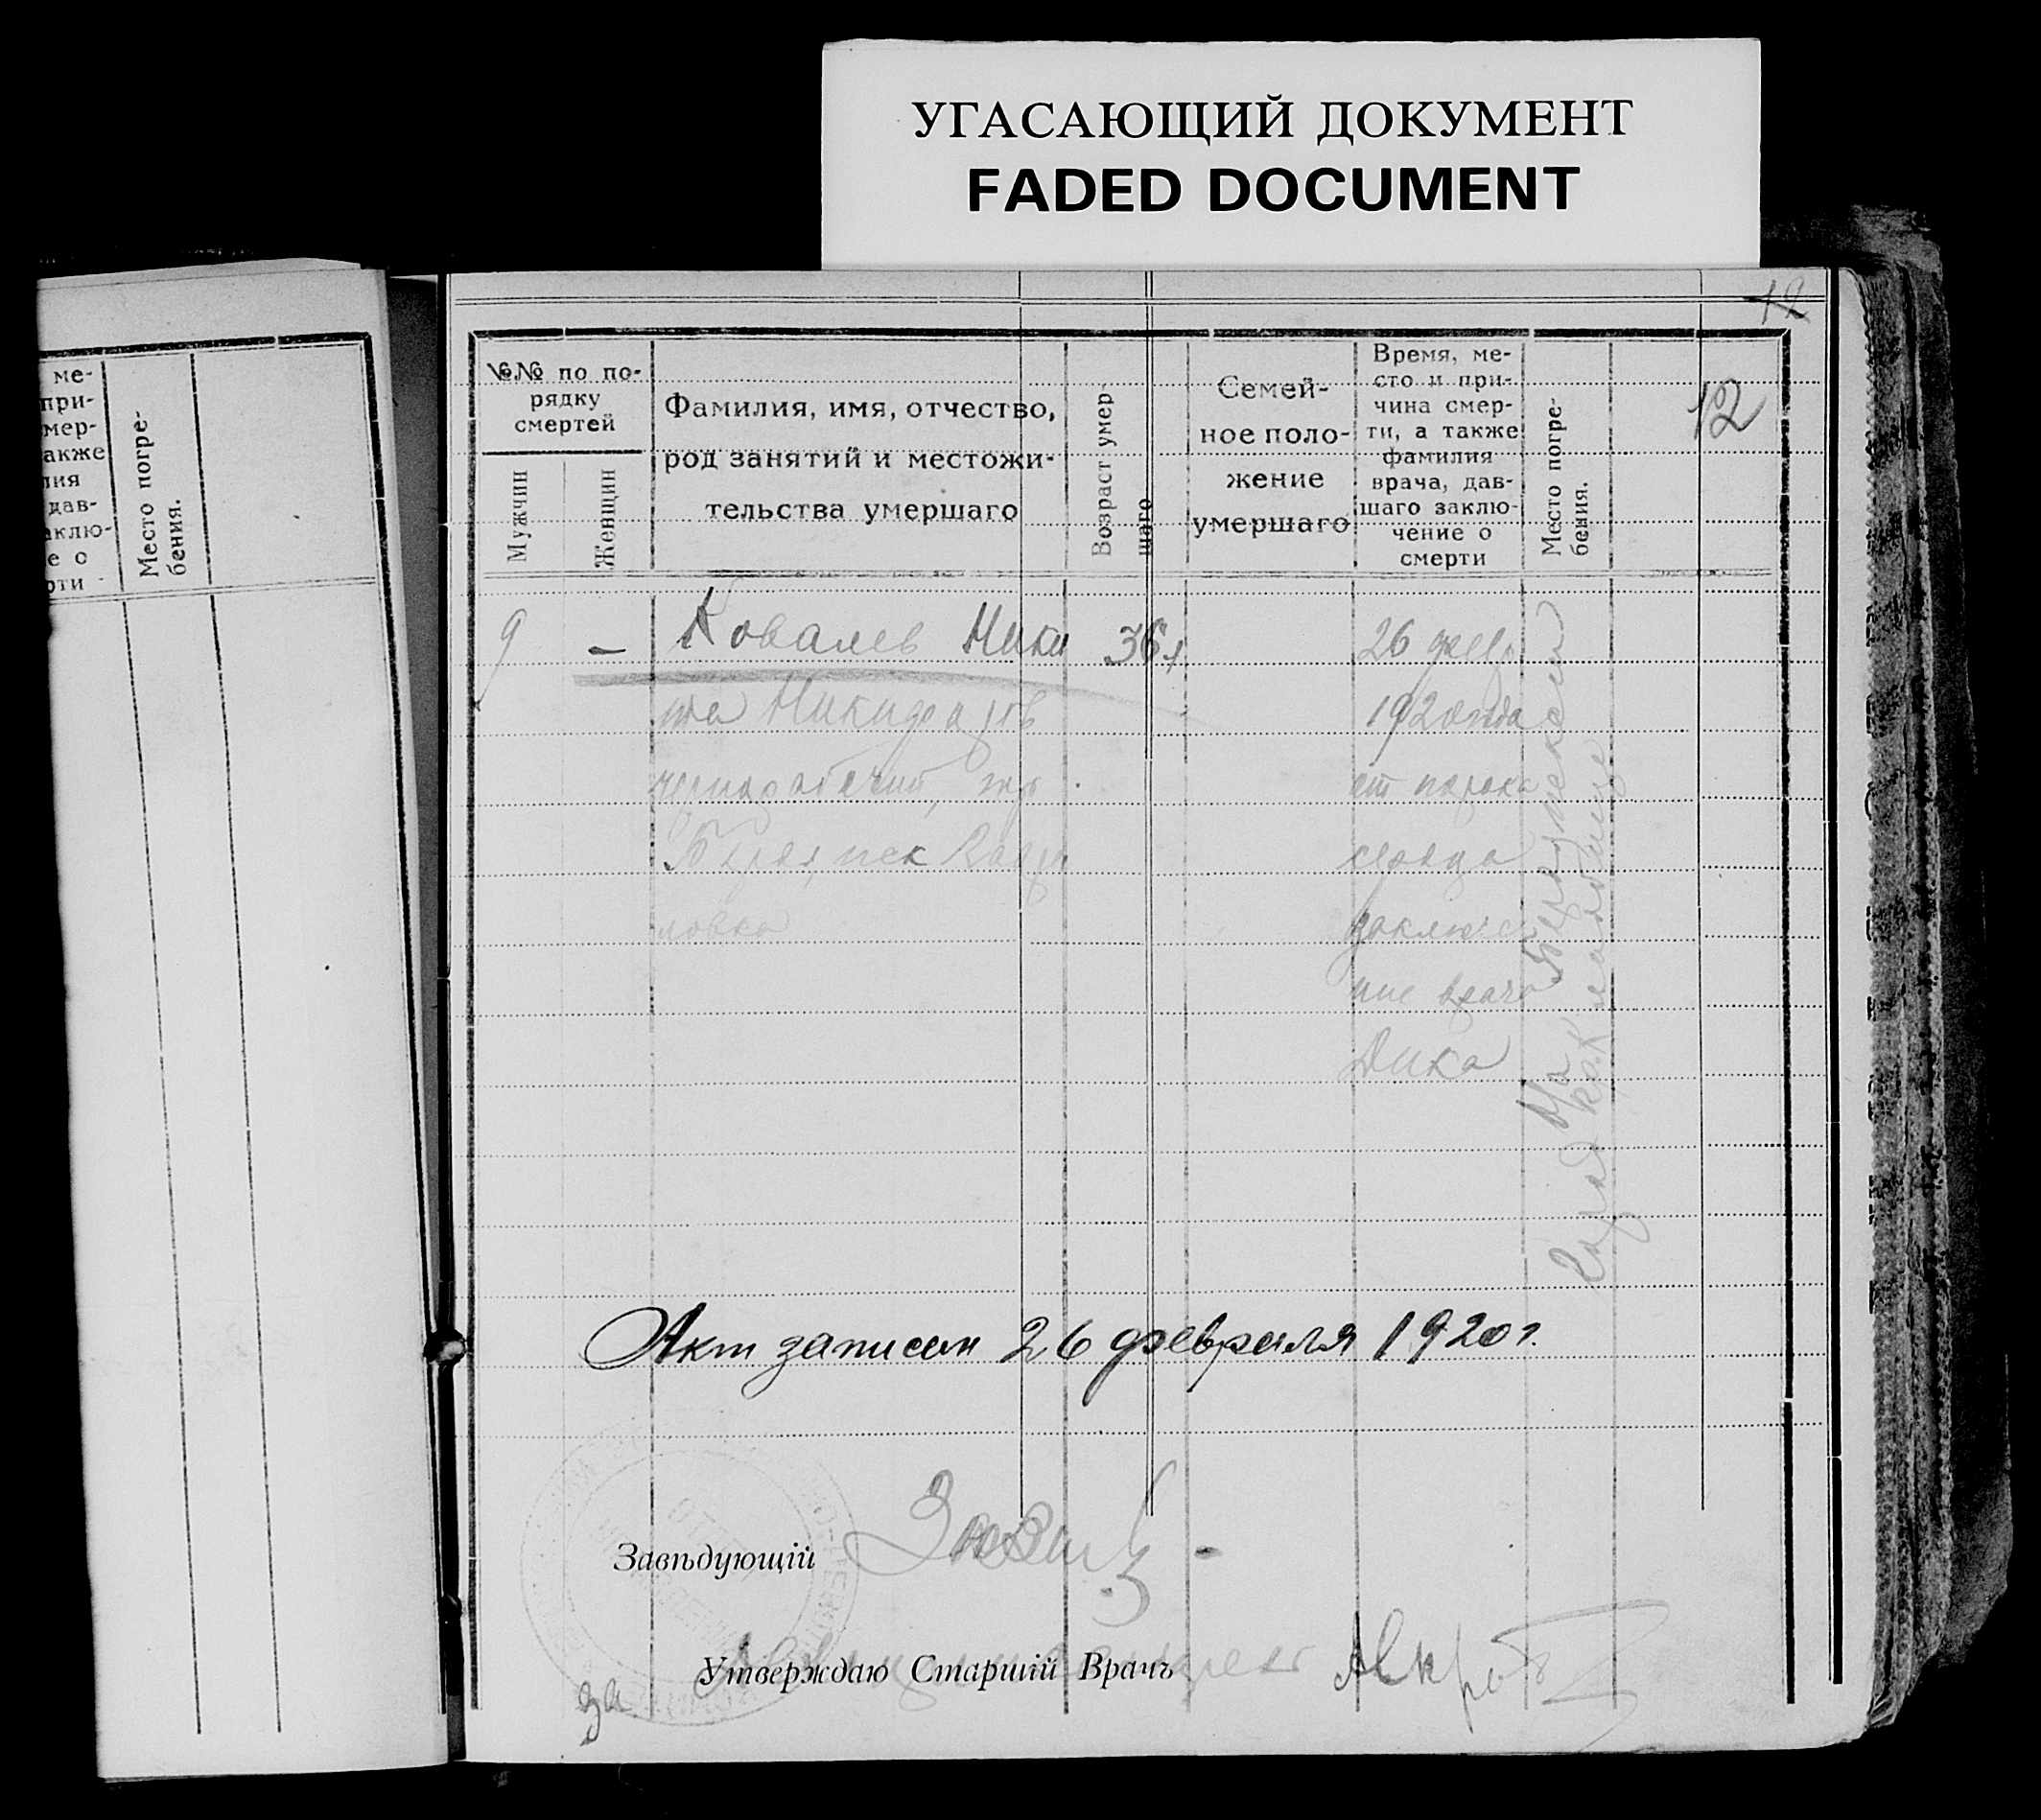 УГАСАЮЩИЙ ДОКУМЕНТ
FADED DOCUMENT
12
12
ме-
при-
мер-
акже
лия
дав-
аклю-
е о
рти -
Место погре-
бения.
№№ по по-
рядку
смертей
Мужчин
Женщин
Фамилия, имя, отчество,
род занятий и местожи-
тельства умершаго
Возраст умер-
шаго
Семей-
ное поло-
жение
умершаго
Время, ме-
сто и при-
чина смер-
ти, а также
фамилия
врача, дав-
шаго заклю-
чение о
смерти
Место погре-
бения.
9 — Ковалев Ники
та
чернорабочий,
ловка
36 л
26 февр
1920 года
от порока
сердца
заключе
ние врача
Дика
На
кладбище
Акт записан 26 февраля 1920 г.
Завѣдующій
за Утверждаю Старшій Врачъ